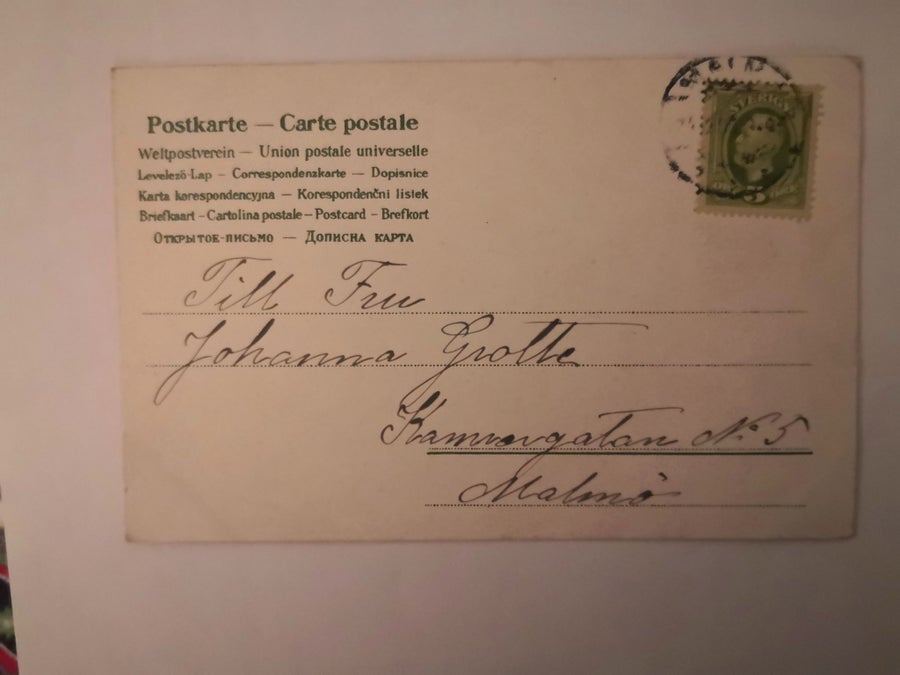 Postkarte — Carte postale
Weltpostverein — Union postale universelle
Levelező-Lap — Correspondenzkarte — Dopisnice
Karta korespondencyjna — Korespondenčni listek
Briefkaart – Cartolina postale – Postcard – Brefkort
Открытое-письмо — Дописна карта
SVERIGE
5
Till Fru
Johanna Grolte
No 5
Malmö